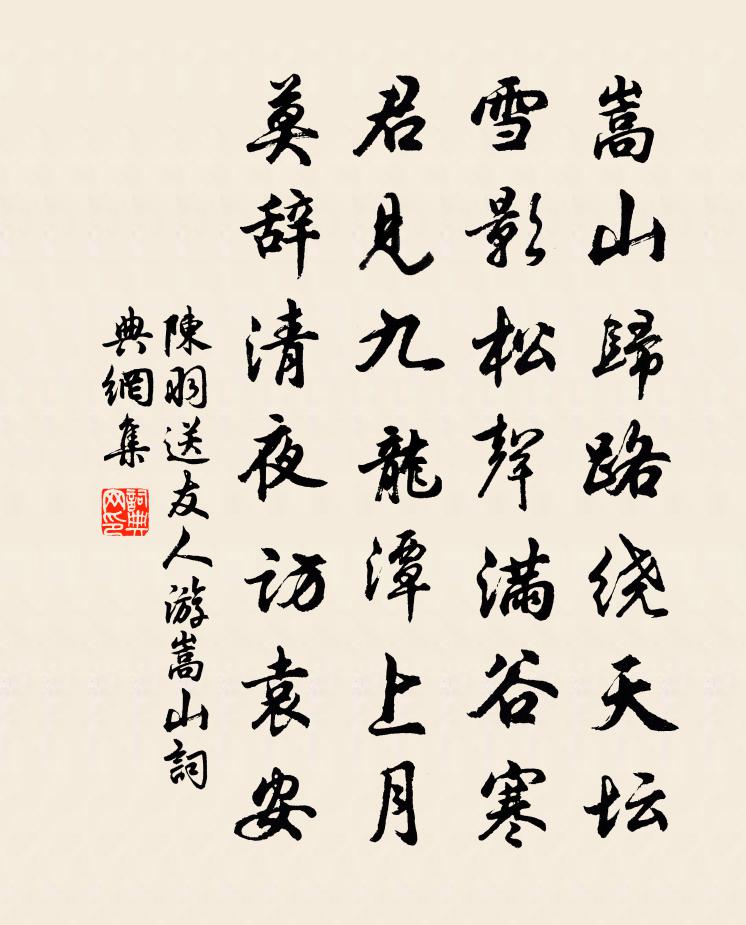 嵩山歸路绕天坛
雪影松聲满谷寒
君見九龍潭上月
莫辞清夜访袁安
陳羽送友人游嵩山詞
典網集
詞典网印